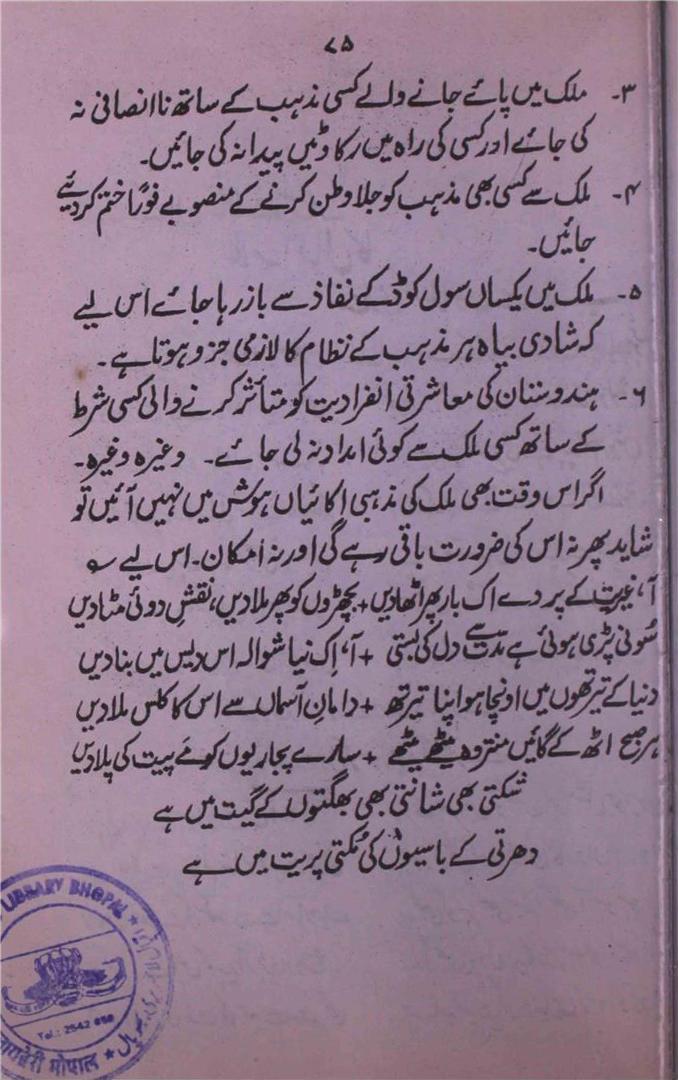 ۷۵
۳۔ ملک میں پائے جانے والے کسی مذہب کے ساتھ ناانصافی نہ
کی جائے اور کسی کی راہ میں رکاوٹیں پیدا نہ کی جائیں۔
۴۔ ملک سے کسی بھی مذہب کو جلاوطن کرنے کے منصوبے فوراً ختم کردیئے
جائیں۔
۵۔ ملک میں یکساں سول کوڈ کے نفاذ سے باز رہا جائے اس لیے
کہ شادی بیاہ ہر مذہب کے نظام کا لازمی جزو ہوتا ہے۔
۶۔ ہندوستان کی معاشرتی انفرادیت کو متأثر کرنے والی کسی شرط
کے ساتھ کسی ملک سے کوئی امداد نہ لی جائے۔ وغیرہ وغیرہ۔
اگر اس وقت بھی ملک کی مذہبی اکائیاں ہوش میں نہیں آئیں تو
شاید پھر نہ اس کی ضرورت باقی رہے گی اور نہ اُمکان۔ اس لیے ؎
آ، غیرت کے پردے اک بار پھر اٹھادیں + بچھڑوں کو پھر ملادیں، نقشِ دوئی مٹادیں
سُونی پڑی ہوئی ہے مدت سے دل کی بستی + آ، اِک نیا شوالہ اس دیس میں بنادیں
دنیا کے تیرتھوں میں اونچا ہو اپنا تیرتھ + دامانِ آسماں سے اس کا کلس ملادیں
ہر صبح اٹھ کے گائیں منتر وہ میٹھے میٹھے + سارے پجاریوں کو مَے پیت کی پلادیں
شکتی بھی شانتی بھی بھگتوں کے گیت میں ہے
دھرتی کے باسیوں کی مُکتی پریت میں ہے
LIBRARY BHOPAL
Tel.: 2542
लायब्रेरी भोपाल